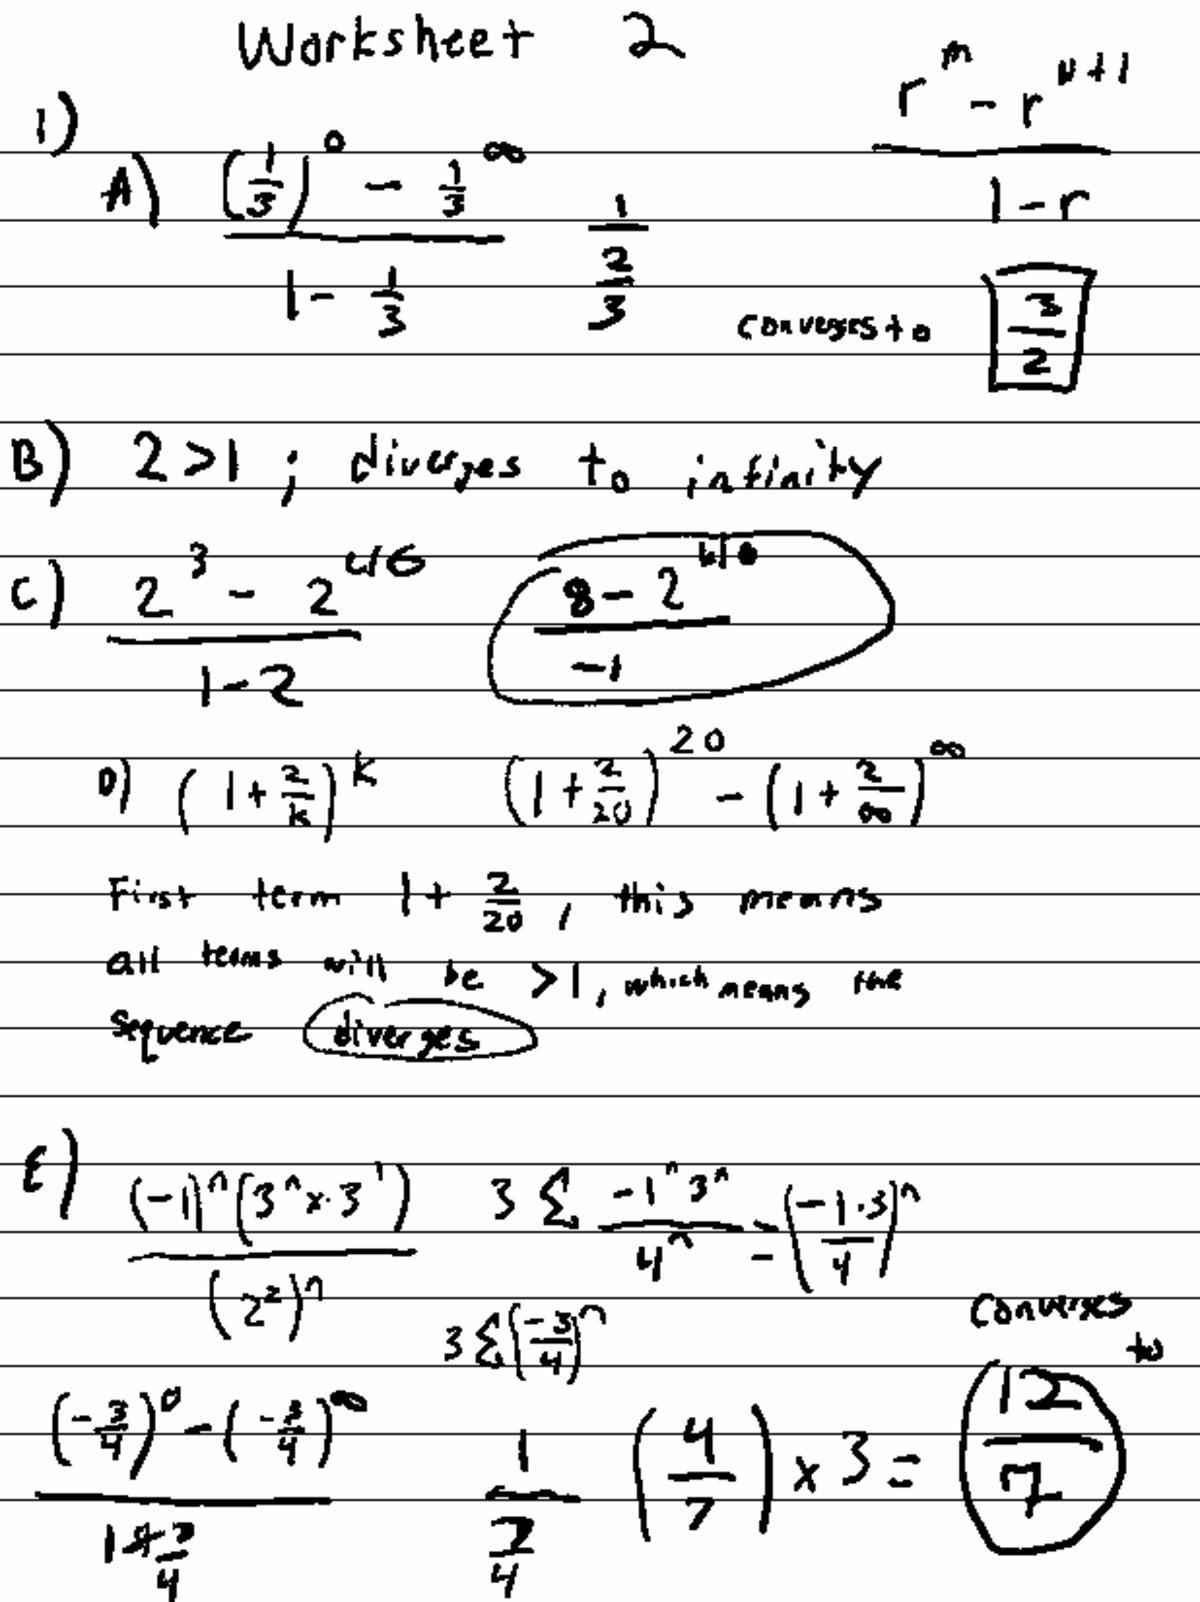 Worksheet 2
r^m - r^(n+1) / 1 - r
1)
A) (1/3)^0 - 1/3^∞ / 1 - 1/3    1 / (2/3)    converges to 3/2
B) 2 > 1 ; diverges to infinity
C) 2^3 - 2 / 1 - 2    8 - 2 / -1
D) (1 + 2/k)^k    (1 + 2/20)^20 - (1 + 2/∞)^∞
First term 1 + 2/20 , this means
all terms will be > 1 , which means the
sequence diverges
E) (-1)^n (3^n x 3^1) / (2^2)^n    3 Σ -1^n 3^n / 4^n = (-1·3 / 4)^n
3 Σ (-3/4)^n    Converges to
(-3/4)^0 - (-3/4)^∞ / 1 + 3/4    1 / (7/4)    (4/7) x 3 = 12/7